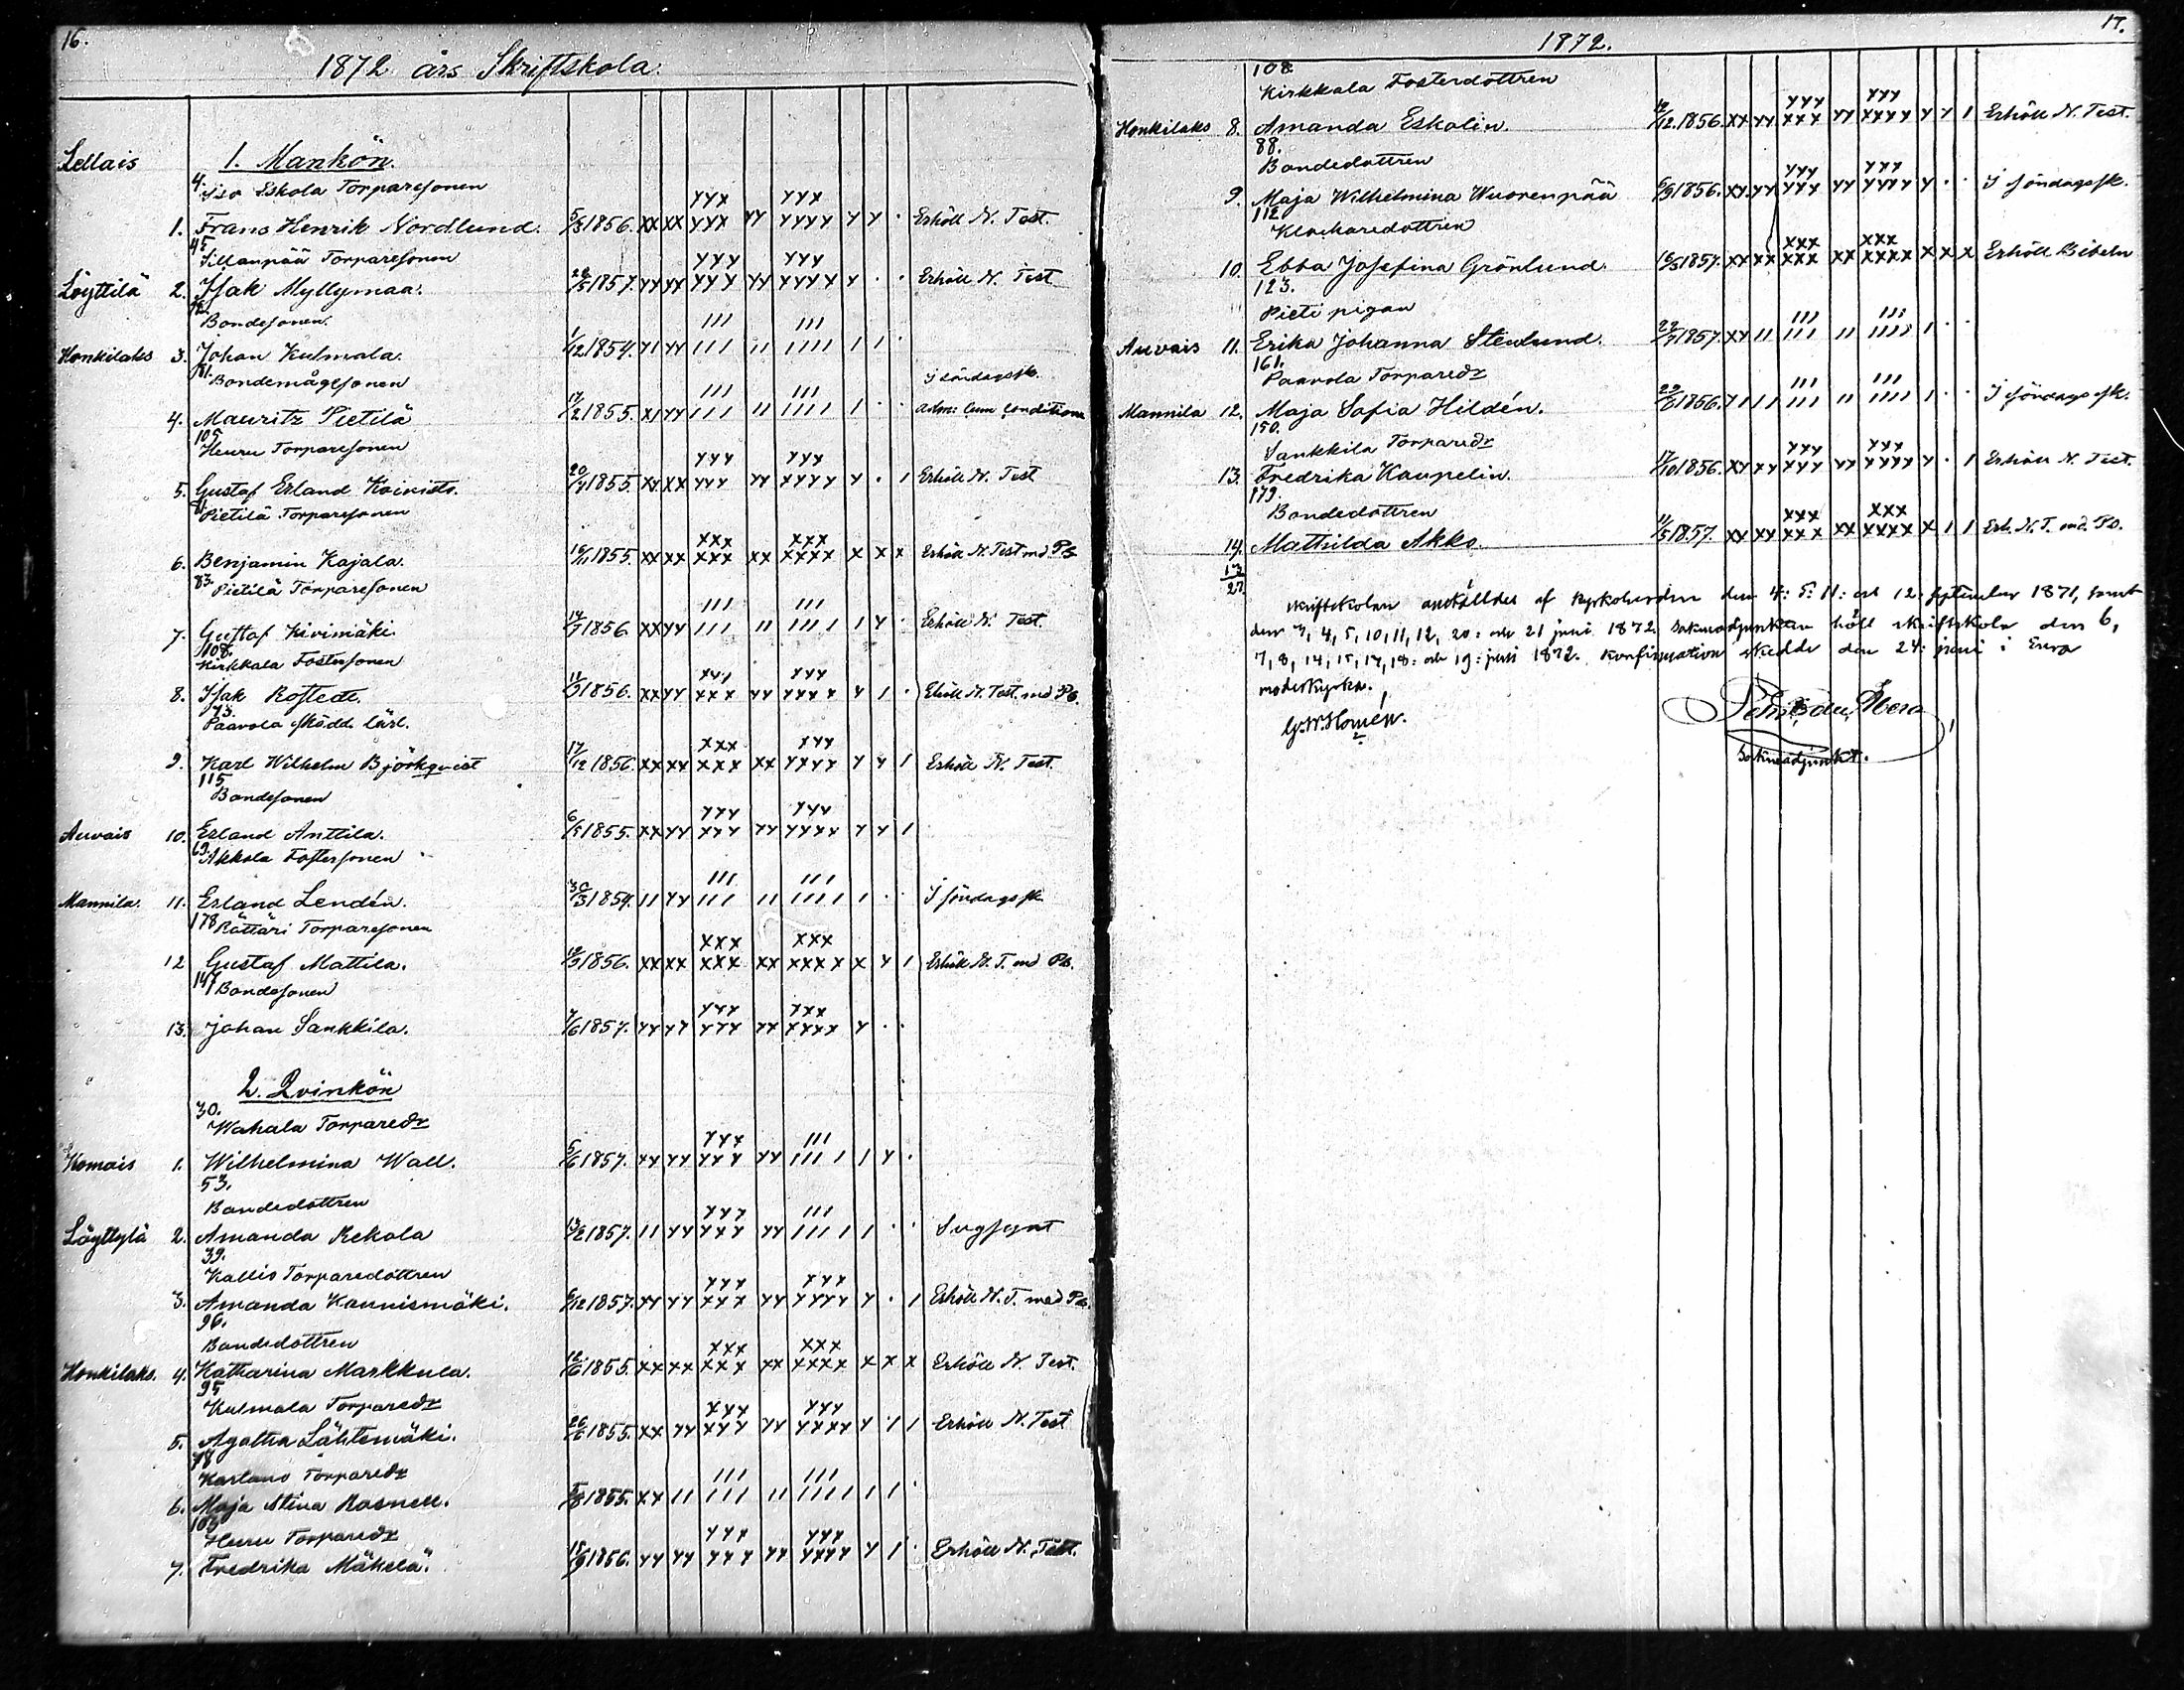 16.
1872 års Skriftskola.
Lellais
1. Mankön.
4. Iso Eskola Torparesonen
1. Frans Henrik Nordlund. 5/3 1856. xx xx yyy yyy yy yyy yyyy y y · Erhöll N. Test.
45. Sillanpää Torparesonen
Löyttilä 2. Isak Myllymaa. 28/5 1857. yy yy yyy yyy yy yyy yyyy y · · Erhöll N. Test
Bondesonen.
Honkilaks 3. Johan Kulmala. 1/12 1854. y1 yy 111 111 11 111 1111 1 1 ·
81. Bondemågesonen
4. Mauritz Pietilä 17/2 1855. x1 yy 111 111 11 111 1111 1 · · I söndagssk. adm: cum conditione
105 Heuru Torparesonen
5. Gustaf Erland Koivisto. 20/4 1855. xx xx yyy yyy yy yyy yyyy y · 1 Erhöll N. Test
Pietilä Torparesonen
6. Benjamin Kajala. 10/11 1855. xx xx xxx xxx xx xxx xxxx x x x Erhöll N. Test md Ps
83. Pietilä Torparesonen
7. Gustaf Kivimäki. 14/7 1856. xx yy 111 111 11 111 1111 1 y · Erhöll N. Test.
108. Kirkkala Fostersonen
8. Isak Rostedt. 11/9 1856. xx yy xxx yy yyy xxxx y 1 · Erhöll N. Test. md Ps.
173. Paavola Skrädd. lärl.
9. Karl Wilhelm Björkqvist 17/12 1856. xx xx xxx xxx xx yyy yyyy y y 1 Erhöll N. Test.
115 Bondesonen
Auvais 10. Erland Anttila. 6/5 1855. xx yy yyy xxy yy yyy yyyy y y 1
69. Akkola Fostersonen
Mannila. 11. Erland Lendén. 30/3 1854. 11 yy 111 111 11 111 1111 1 · · I söndagssk
178 Rättäri Torparesonen
12 Gustaf Mattila. 12/9 1856. xx xx xxx xxx xx xxx xxxx x y 1 Erhöll N. T. md Ps.
147 Bondesonen
13. Johan Sankkila. 4/6 1857. yy yy yyy yyy yy yyy xxxx y · ·
2. Qvinkön
30. Wahala Torparedr
Komais 1. Wilhelmina Wall. 5/6 1857. yy yy yyy yyy yy 111 1111 1 y ·
53.
Bondedottren
Löyttylä 2. Amanda Rekola 13/2 1857. 11 yy yyy yyy yy 111 1111 1 · · Svagsynt
39.
Kallio Torparedottren
3. Amanda Kaunismäki. 6/12 1857. yy yy yyy xxx yy yyy yyyy y · 1 Erhöll N. T. med Ps.
96.
Bondedottren
Honkilaks. 4. Katharina Markkula. 12/6 1855. xx xx xxx xxx xx xxx xxxx x x x Erhöll N. Test.
95
Kulmala Torparedr
5. Agatha Lähtemäki. 26/6 1855. xx yy xyy xyy yy yyy yyxy y 1 1 Erhöll N. Test
78
Torparedr
6. Maja Stina Rosnell. 5/8 1855. xy 11 111 111 11 111 1111 1 1 ·
105
Heuru Torparedr
7. Fredrika Mäkelä. 18/9 1856. yy yy yyy yyy yy yyy yyyy y 1 · Erhöll N. Test.
1872.
17.
108
Kirkkala Fosterdottren
Honkilaks 8. Amanda Eskolin. 12/12. 1856. xx yy yyy xxx yy yyy xxyy y y 1 Erhöll N. Test.
88.
Bondedottren
9. Maja Wilhelmina Wuorenpää 6/9 1856. xx yy yyy yyy yy yyy yyyy y · · I söndagssk.
112
Klockaredottren
10. Ebba Josefina Grönlund. 16/3 1857. xx xx xxx xxx xx xxx xxxx x x x Erhöll Bibeln
123.
Pieti pigan
Auvais 11. Erika Johanna Stenlund. 22/7 1857. xy 11 111 111 11 111 1111 1 · ·
161.
Paavola Torparedr
Mannila 12. Maja Sofia Hildén. 29/6 1856. y1 11 111 111 11 111 1111 1 · · I söndagssk.
150.
Sankkila Torparedr
13. Fredrika Kaupelin. 17/10 1856. xy xy yyy yyy yy yyy yyyy y · 1 Erhöll N. Test.
179.
Bondedottren
14. Mathilda Akko. 11/5 1857. xx xx xxx xxx xx xxx xxxx x 1 1 Erh. N. T. md. Ps.
13
27
Skriftskolan anställdes af kyrkoherden den 4: 5: 11: och 12. september 1871, samt
den 3, 4, 5, 10, 11, 12, 20: och 21 juni 1872. Sokneadjunkten höll skriftskola den 6,
7, 8, 14, 15, 17, 18: och 19: juni 1872. Konfirmation skedde den 24: juni i Eura
moderkyrka.
sokneadjunkt.